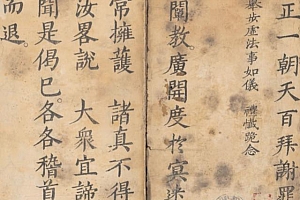 正一朝天百拜謝罪
舉步虛法事如儀 禮懺跪念
闡教。廣開度於冥迷
常擁護 諸真不得
汝畧說 大衆宜諦
聞是偈已。各各稽首
而退。